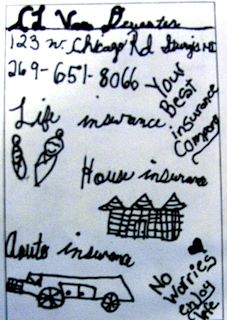 Van Deventer
123 W. Chicago Rd Sturgis MI
269-651-8066
Your
Best
insurance
Company
Life insurance
House insurance
Auto insurance
No
Worries
enjoy
life